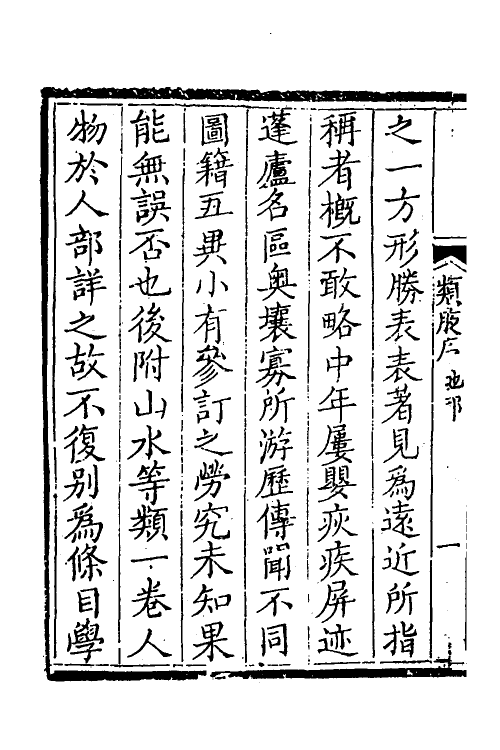 之一方形勝表表著見爲遠近所指
稱者槪不敢略中年屢嬰疢疾屏迹
蓬廬名區奥壤寡所游歷傳聞不同
圖籍互異小有參訂之勞究未知果
能無誤否也後附山水等類一卷人
物於人部詳之故不復别爲條目學
類腋 地部
一